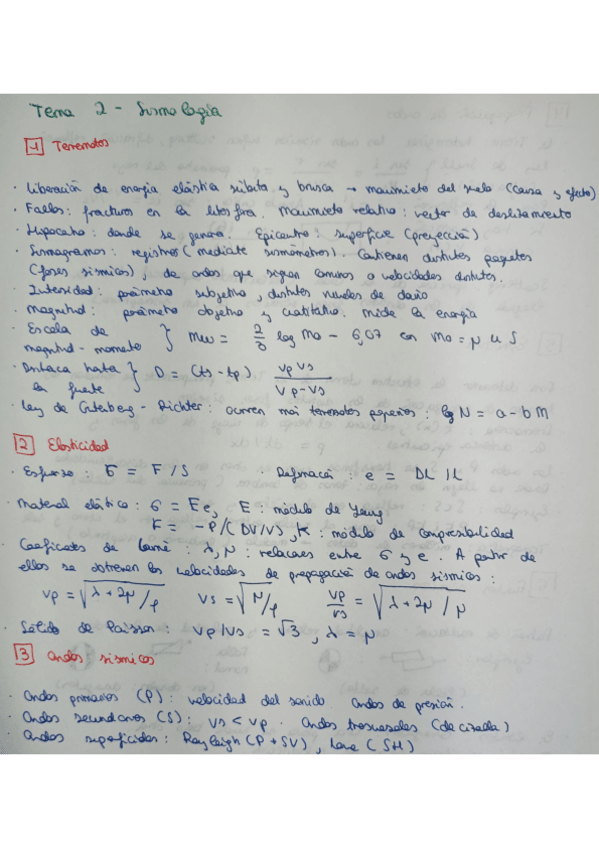 Tema 2 - Sismología
1 Terremotos
· Liberación de energia elástica súbita y brusca → movimiento del suelo (causa y efecto)
· Fallas: fracturas en la litosfera. Movimiento relativo: vector de deslizamiento
· Hipocentro: donde se genera. Epicentro: superficie (proyección)
· Sismogramas: registros (mediante sismómetros). Contienen distintos paquetes
(fases sísmicas), de ondas que siguen caminos o velocidades distintas.
· Intensidad: parámetro subjetivo, distintos niveles de daño
· Magnitud: parámetro objetivo y cuatitativo. mide la energía
· Escala de
magnitud-momento } Mw = 2/3 log Mo - 6,07 con Mo = μ u S
· Distacia hasta
la fuente } D = (ts - tp) . vp vs / vp - vs
· Ley de Gutenberg - Richter: ocurren más terremotos pequeños: log N = a - b M
2 Elasticidad
· Esfuerzo: σ = F / S · Deformación: e = DL / L
· Material elástico: σ = E e, E: módulo de Young
K = - P / (DV/V), K: módulo de compresibilidad
· Coeficientes de Lamé: λ, μ: relaciones entre σ y e. A partir de
ellos se obtienen las velocidades de propagación de ondas sísmicas:
vp = √λ + 2μ / ρ vs = √μ / ρ vp/vs = √λ + 2μ / μ
· Sólido de Poisson: vp/vs = √3, λ = μ
3 Ondas sísmicas
· Ondas primarias (P): velocidad del sonido Ondas de presión.
· Ondas secundarias (S): vs < vp. Ondas trasversales (de cizalla)
· Ondas superficiales: Rayleigh (P + SV), Love (SH)